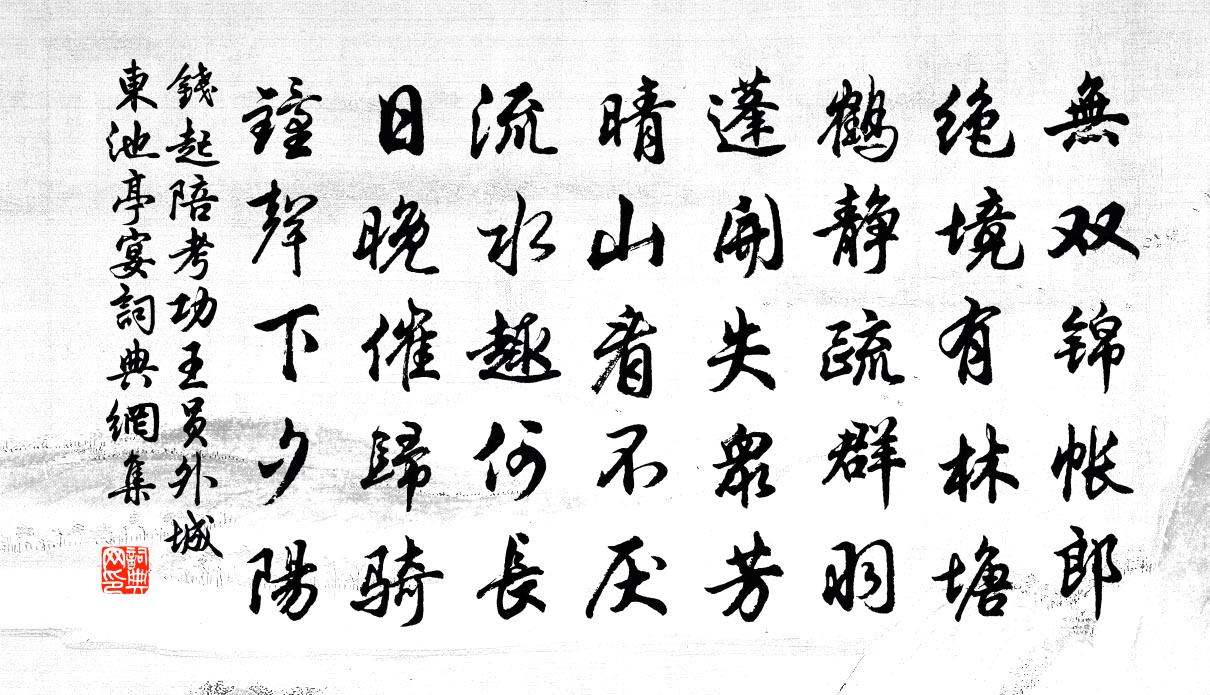 無双锦帐郎
绝境有林塘
鹤静疏群羽
蓬開失衆芳
晴山看不厌
流水趣何長
日晚催歸骑
鐘聲下夕陽
錢起陪考功王员外城
東池亭宴詞典網集
詞典网印